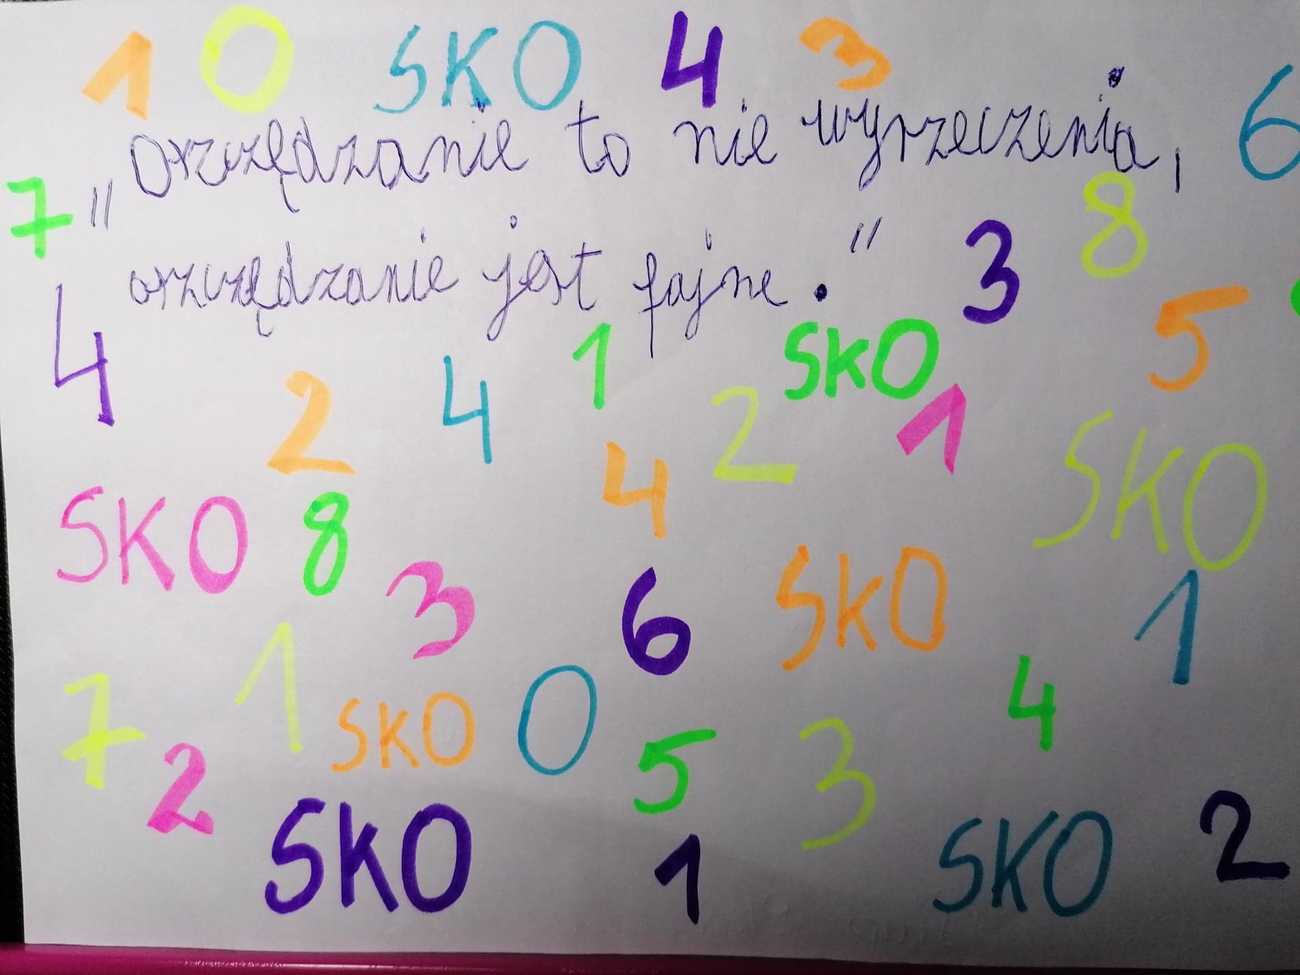 1 0 SKO 4 3
6
„Oszczędzanie to nie wyrzeczenia,
7
8
oszczędzanie jest fajne."
3
4
5
2 4 1 SKO
4 2 1 SKO
SKO 8
3 6 SKO 1
7 1 SKO 0 4
2 5 3
SKO 1 SKO 2